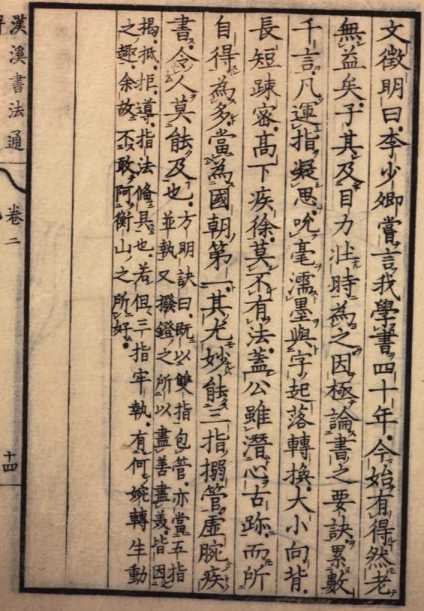 文徵明曰李少卿嘗言我學書四十年今始有得然老
無益矣子其及目力壯時為之因極論書之要訣累數
千言凡運指凝思吮毫濡墨與字起落轉換大小向背
長短疎密高下疾徐莫不有法蓋公雖潛心古跡而所
自得為多當為國朝第一其尤妙能三指搦管虛腕疾
書今人莫能及也方明訣曰既以雙指包管亦當五指
並執又撥鐙之所以盡善盡美皆因
揭抵拒導指法俻具也若但三指牢執有何婉轉生動
之趣余故不敢阿衡山之所好
漢溪書法通
卷二
十四